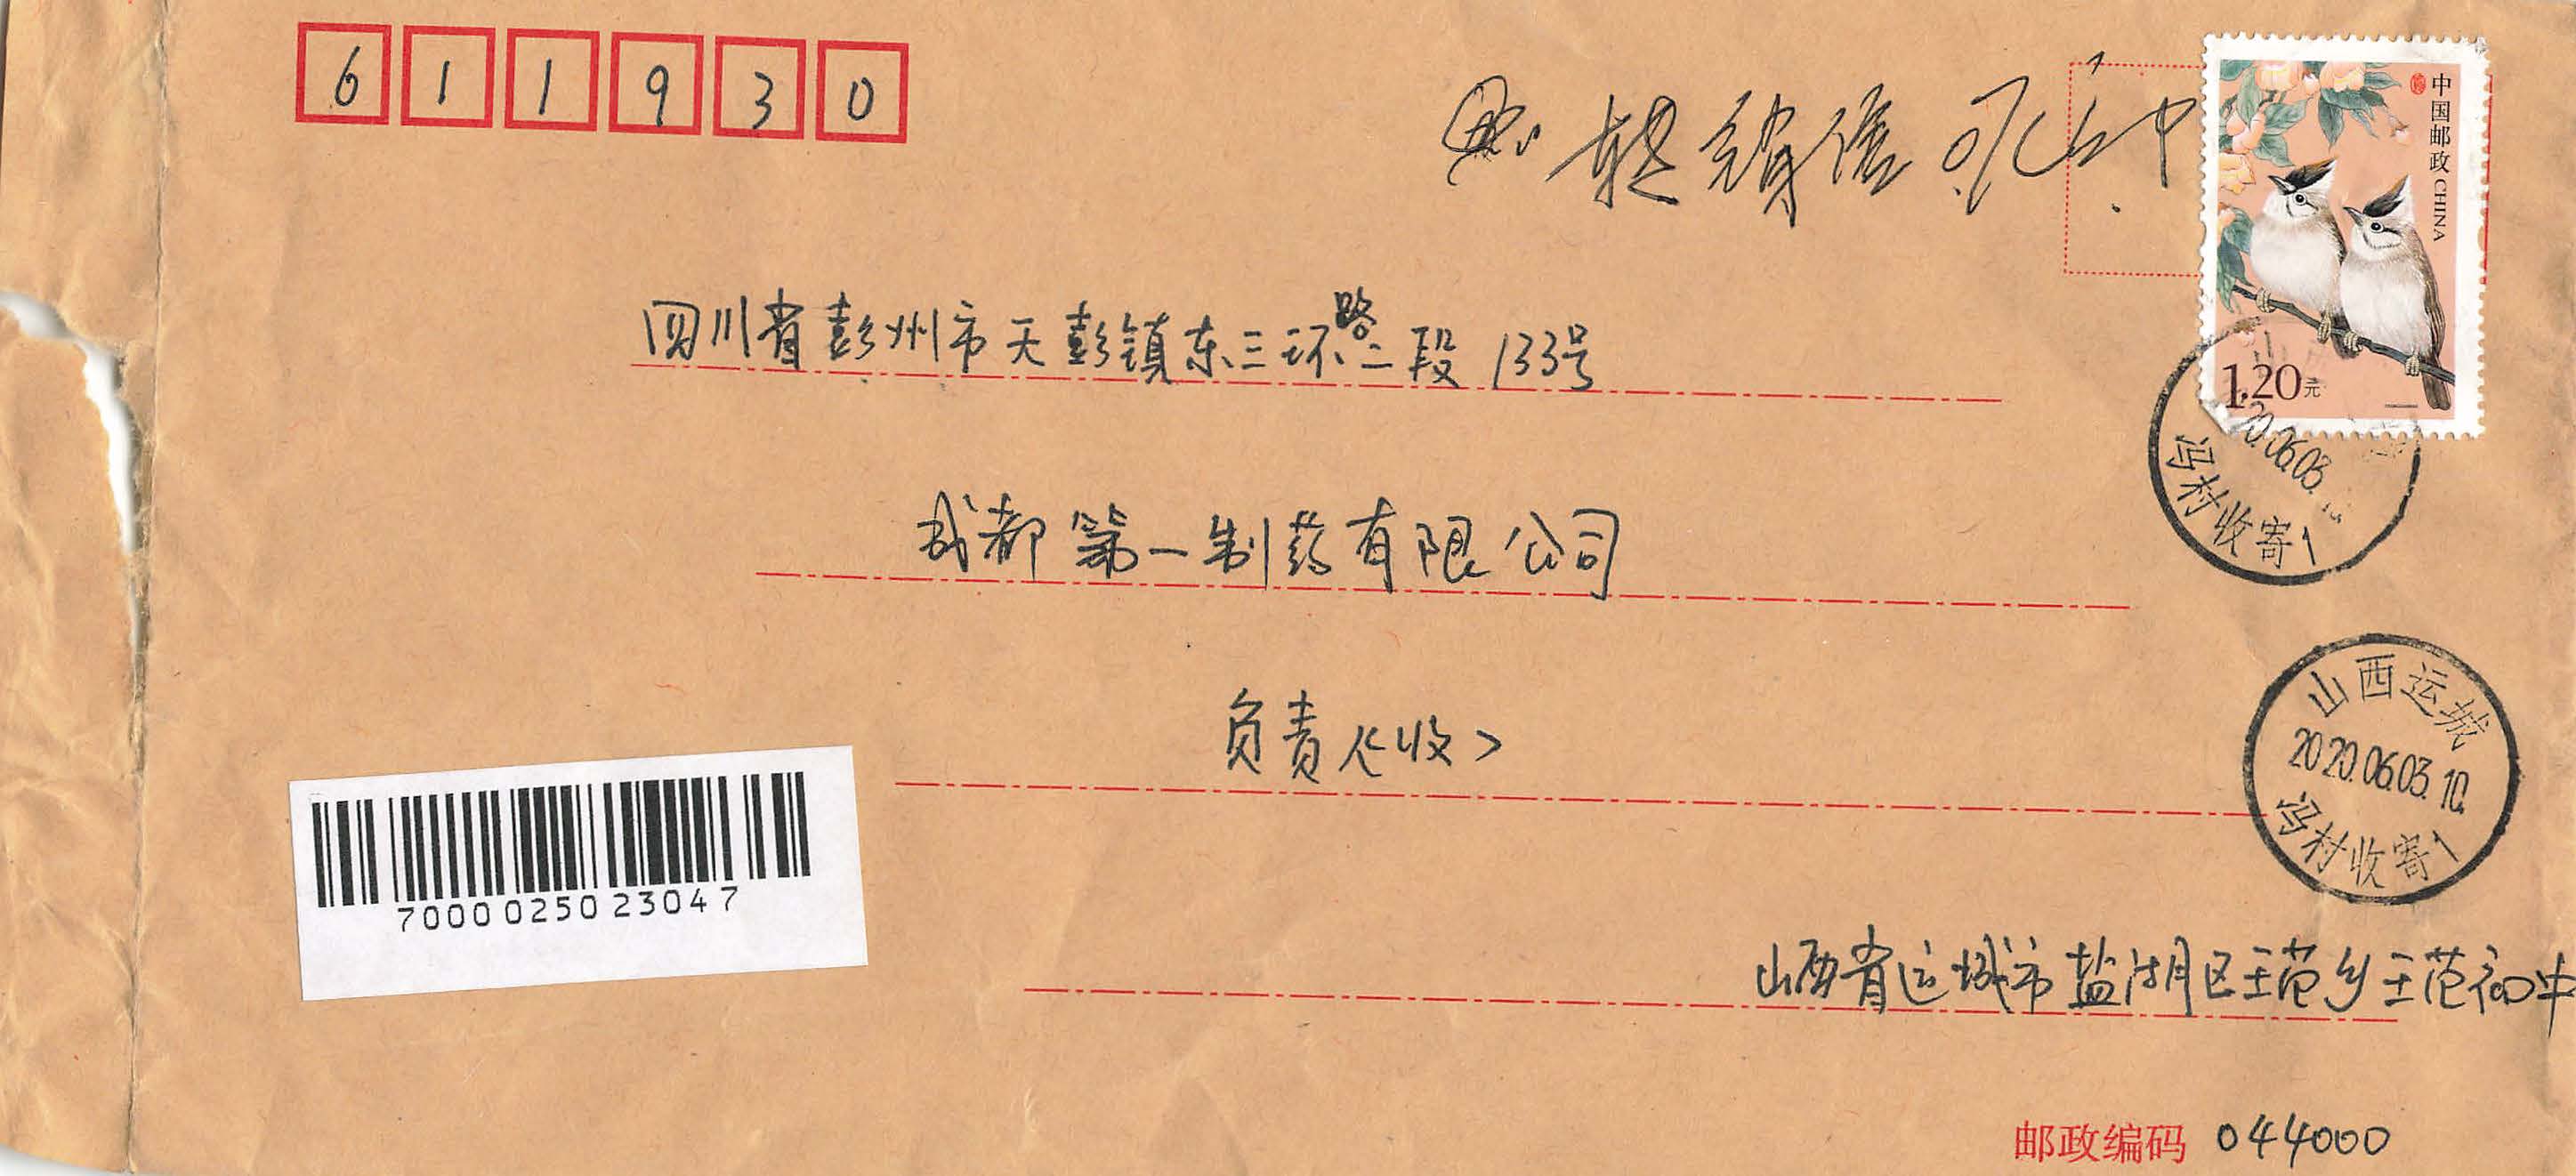 611930
转销售
中国邮政 CHINA
1.20元
四川省彭州市天彭镇东三环路二段133号
20.06.03
冯村收寄1
成都第一制药有限公司
负责人<收>
山西运城
2020.06.03.10
冯村收寄1
7000025023047
山西省运城市盐湖区王范乡王范初中
邮政编码 044000